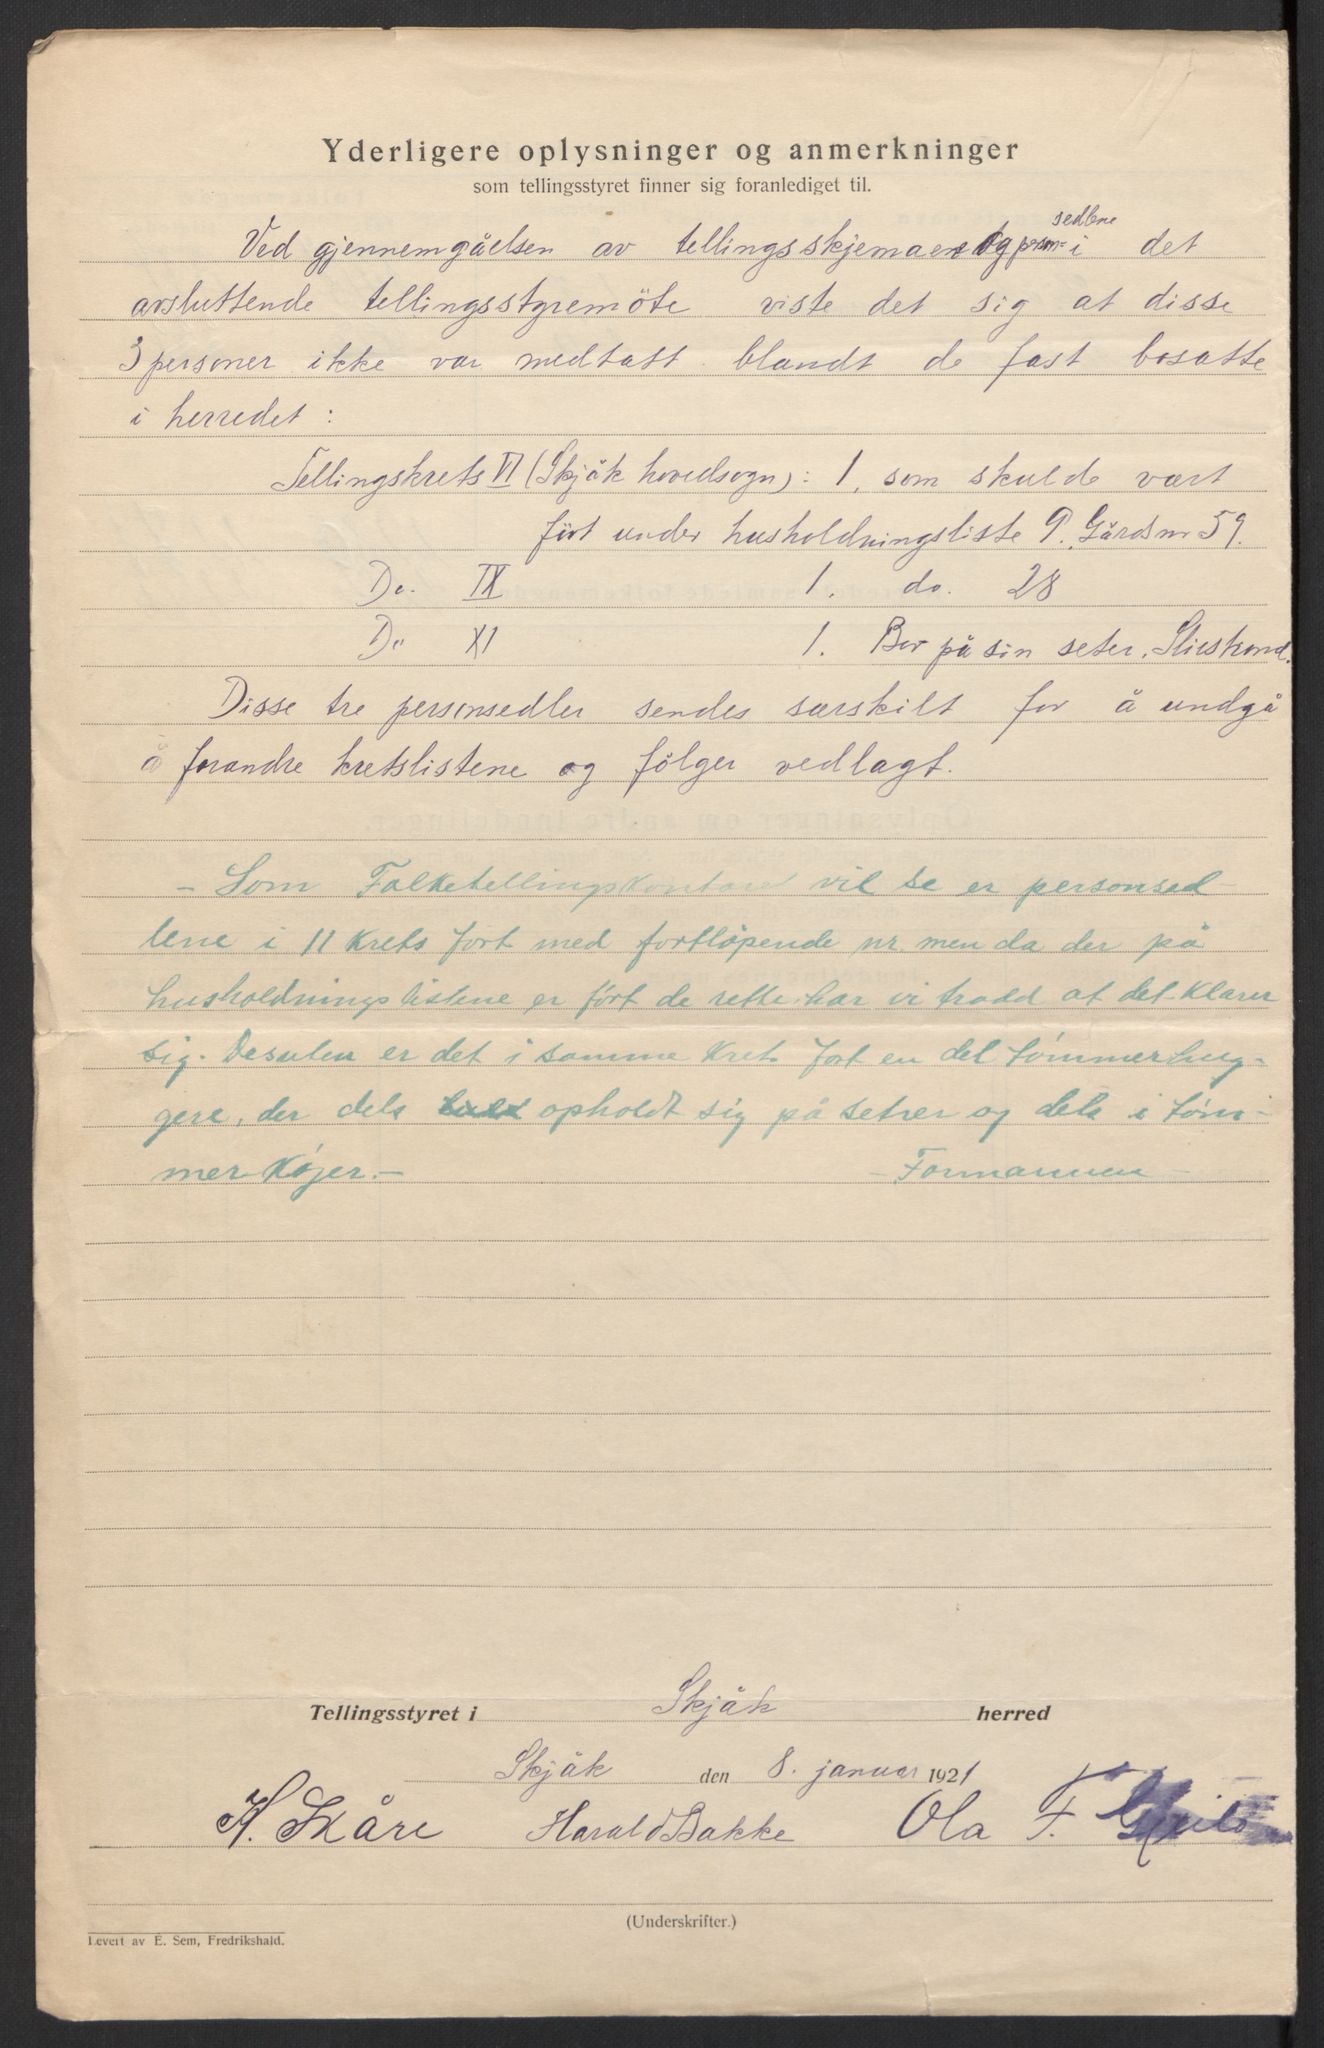 Yderligere oplysninger og anmerkninger
som tellingsstyret finner sig foranlediget til.
Ved gjennemgåelsen av tellingsskjemaer og person-sedlene i det
avsluttende tellingsstyremöte viste det sig at disse
3 personer ikke var medtatt blandt de fast bosatte
i herredet:
Tellingskrets VI (Skjåk hovedsogn): 1, som skulde vært
fört under husholdningsliste 9. Gårdsnr 59.
Do. IX 1. do. 28
Do XI 1. Bor på sin seter,
Disse tre personsedler sendes særskilt for å undgå
å forandre kretslistene og fölger vedlagt.
- Som Folketellingskontoret vil se er personsed-
lene i 11 krets fört med fortløpende nr. men da der på
husholdningslistene er fört de rette har vi trodd at det klarer
sig. Desuten er det i samme krets fört en del tømmerhug-
gere, der dels opholdt sig på setrer og dels i tøm-
mer-køjer. - - Formannen -
Tellingsstyret i Skjåk herred
Skjåk den 8. januar 1921
H. Skåre Harald Bakke Ola F.
(Underskrifter.)
Levert av E. Sem, Fredrikshald.